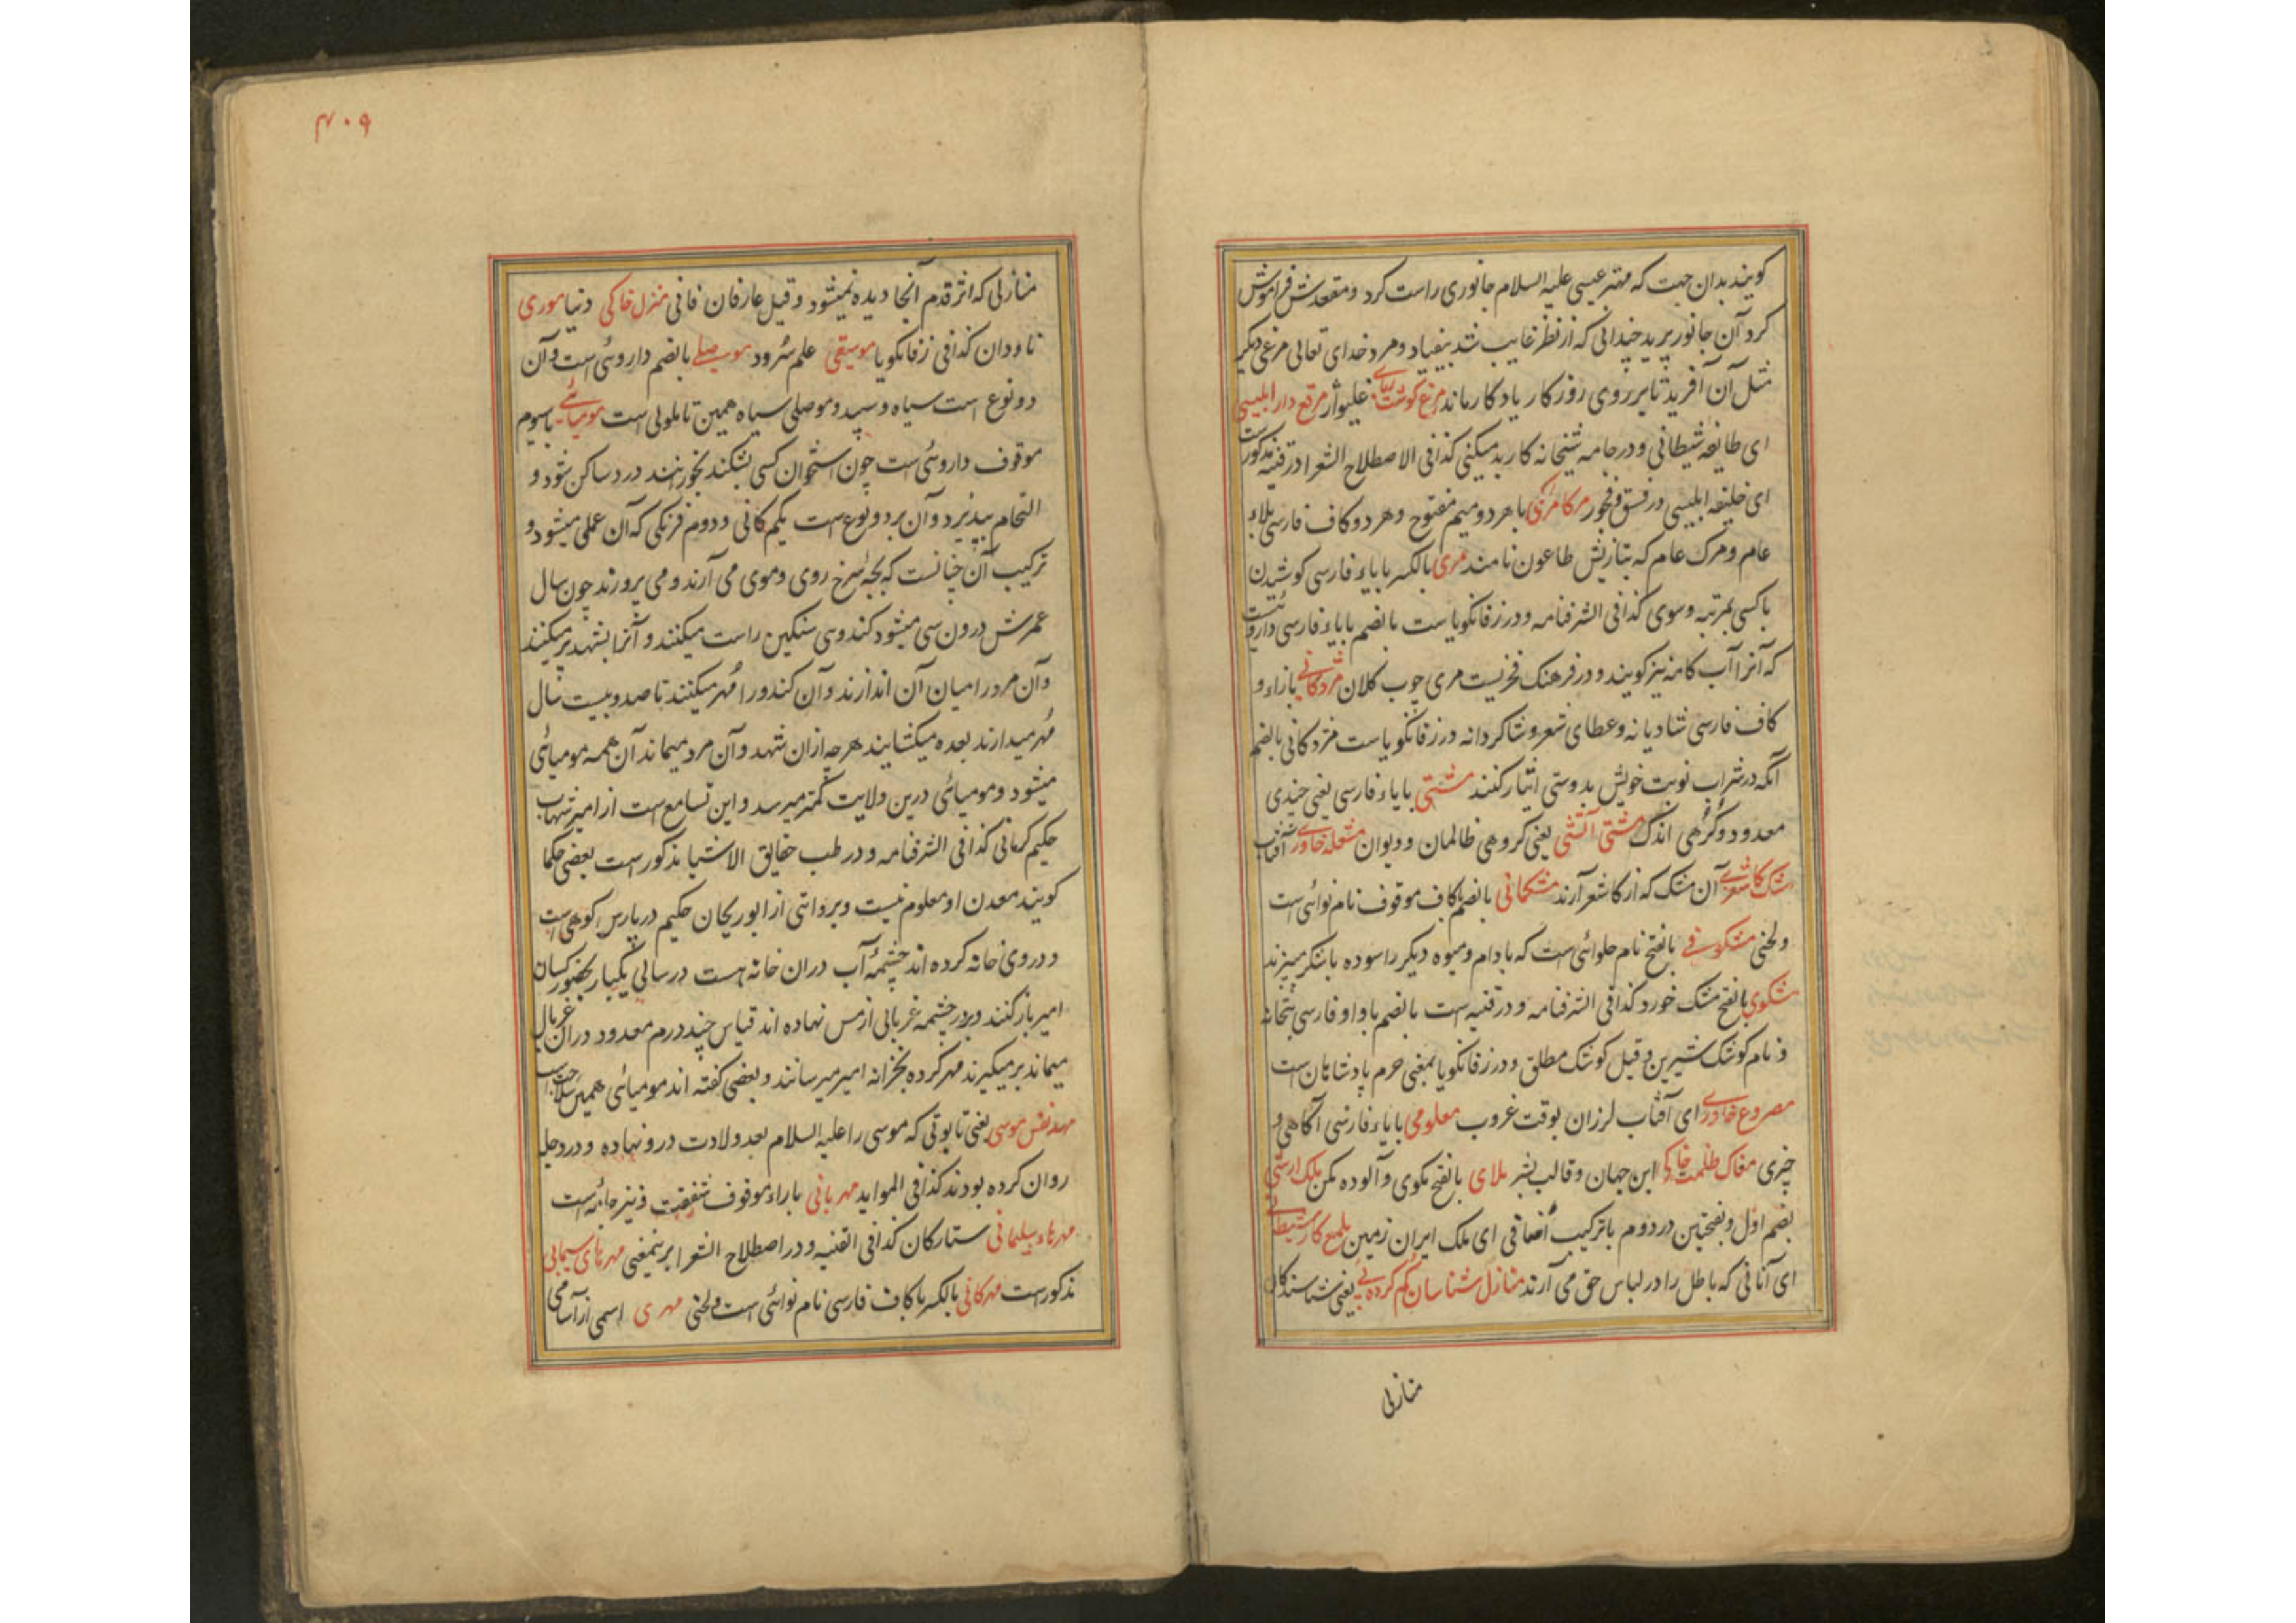 کویند بدان جهت که مهتر عیسی علیه السلام جانوری راست کرد و مقعدش فراموش
کرد آن جانور پرید چندانی که از نظر غایب شد بیفتاد و مرد خدای تعالی مرغی دیکر
مثل آن آفرید تا بر روی روزکار یادکار ماند مرغ کوشت ربای غلیواژ مرقع دار ابلیسی
ای طایفه شیطانی و در جامه شیخانه کار بد میکنی کذافی الاصطلاح الشعرا در قنیه مذکورست
ای خلیفه ابلیسی در فسق و فجور مرکامرکی با هر دو میم مفتوح و هر دو کاف فارسی بلاء
عام و مرک عام که بتازیش طاعون نامند مری بالکسر با یاء فارسی کوشیدن
با کسی بمرتبه وسوی کذافی الشرفنامه و در زفانکویاست بالضم با یاء فارسی داروئیست
که آنرا آب کامه نیز کویند و در فرهنک فخریست مری چوب کلان مژدکانی با زاء و
کاف فارسی شادیانه و عطای شعر و شاکردانه در زفانکویاست مزدکانی بالضم
آنکه در شراب نوبت خویش بدوستی ایثار کنند مشتی با یاء فارسی یعنی چندی
معدود و کرهی اندک مشتی آتشی یعنی کروهی ظالمان و دیوان مشعله خاوری آفتاب
مشک کاشغری آن مشک که از کاشغر آرند مشکمانی بالضم با کاف موقوف نام نوائی است
و لحنی مشکوفی بالفتح نام حلوائی است که بادام و میوه دیکر را سوده با شکر میپزند
مشکوی بالفتح مشک خورد کذافی الشرفنامه و در قنیه است بالضم با واو فارسی بتخانه
و نام کوشک شیرین و قیل کوشک مطلق و در زفانکویا بمعنی حرم پادشاهان است
مصروع خاوری ای آفتاب لرزان بوقت غروب معلومی با یاء فارسی آکاهی و
چیزی مغاک ظلمت خاکی این جهان و قالب بشر ملای بالفتح مکوی و آلوده مکن ملک ارشی
بضم اول و بفتحتین در دوم با ترکیب اضافی ای ملک ایران زمین ملمع کار شیطانی
ای آنانی که باطل را در لباس حق می آرند منازل شناسان کم کرده پی یعنی شناسندکان
منازلی
۴۰۹
منازلی که اثر قدم آنجا دیده نمیشود و قیل عارفان فانی منزل خاکی دنیا موری
ناودان کذافی زفانکویا موسیقی علم سرود موصلی بالضم داروئی است و آن
دو نوع است سیاه و سپید و موصلی سیاه همین تاملولی است مومیائی با سیوم
موقوف داروئی است چون استخوان کسی بشکند بخورانند درد ساکن شود و
التحام بپذیرد و آن بر دو نوع است یکم کانی و دوم فرنکی که آن عملی میشود و
ترکیب آن چنانست که بچه سرخ روی و موی می آرند و می پرورند چون سال
عمرش درون سی میشود کندوی سنکین راست میکنند و آنرا بشهد پر میکنند
و آن مرد را میان آن اندازند و آن کندو را مهر میکنند تا صد و بیست سال
مهر میدارند بعده میکشایند هر چه از ان شهد و آن مرد میماند آن همه مومیائی
میشود و مومیائی درین ولایت کمتر میرسد و این تسامع است از امیر شهاب
حکیم کرمانی کذافی الشرفنامه و در طب حقایق الاشیا مذکور است بعضی حکما
کویند معدن او معلوم نیست و بروایتی از ابو ریحان حکیم در پارس کوهی است
و در وی خانه کرده اند چشمه آب دران خانه هست در سالی یکبار بحضور کسان
امیر باز کنند و بر در چشمه غربالی از مس نهاده اند قیاس چند درم معدود دران غربال
میماند بر میکیرند مهر کرده بخزانه امیر میرسانند و بعضی کفته اند مومیائی همین سلاجت است
مهد نفس موسی یعنی تابوتی که موسی را علیه السلام بعد ولادت درو نهاده و در دجله
روان کرده بودند کذافی الموايد مهربانی با راء موقوف شفقت و نیز جامه ایست
مهرهاء سلیمانی ستارکان کذافی القنیه و در اصطلاح الشعرا برینمعنی مهرهای سیمابی
مذکور است مهرکانی بالکسر با کاف فارسی نام نوائی است و لحنی مهری اسمی از آسامی